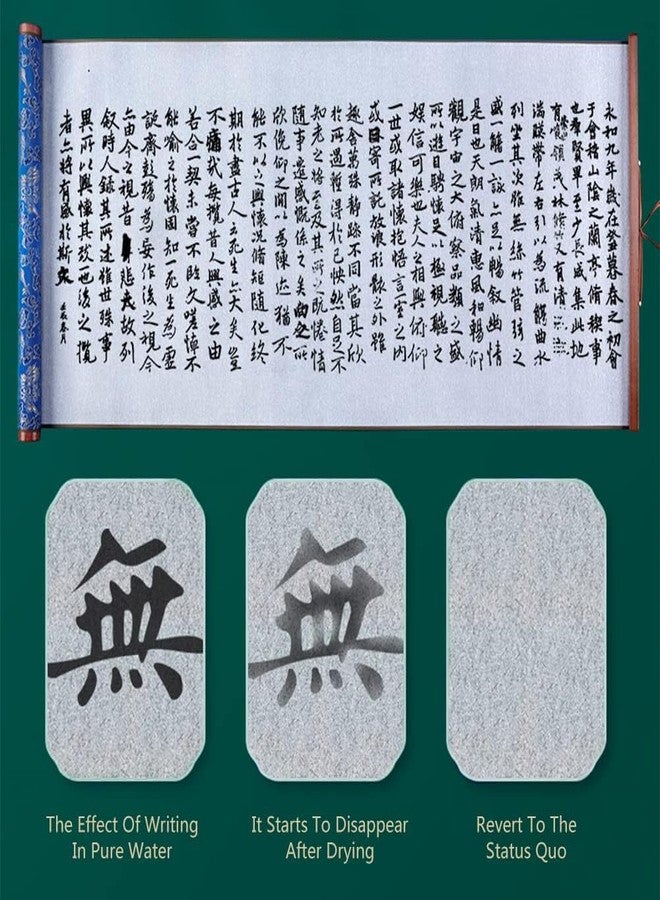 永和九年歲在癸丑暮春之初會
于會稽山陰之蘭亭脩稧事
也羣賢畢至少長咸集此地
有領茂林脩竹又有清
湍暎帶左右引以為流觴曲水
列坐其次雖無絲竹管弦之
盛一觴一詠亦足以暢敘幽情
是日也天朗氣清惠風和暢仰
觀宇宙之大俯察品類之盛
所以遊目騁懷足以極視聽之
娛信可樂也夫人之相與俯仰
一世或取諸懷抱悟言一室之內
或因寄所託放浪形骸之外雖
趣舍萬殊靜躁不同當其欣
於所遇暫得於己怏然自足不
知老之將至及其所之既惓情
隨事遷感慨係之矣向之所
欣俛仰之間以為陳迹猶不
能不以之興懷況脩短隨化終
期於盡古人云死生亦大矣豈
不痛哉每攬昔人興感之由
若合一契未嘗不臨文嗟悼不
能喻之於懷固知一死生為虛
誕齊彭殤為妄作後之視今
亦由今之視昔悲夫故列
敘時人錄其所述雖世殊事
異所以興懷其致一也後之攬
者亦將有感於斯文
無
無
The Effect Of Writing
In Pure Water
It Starts To Disappear
After Drying
Revert To The
Status Quo